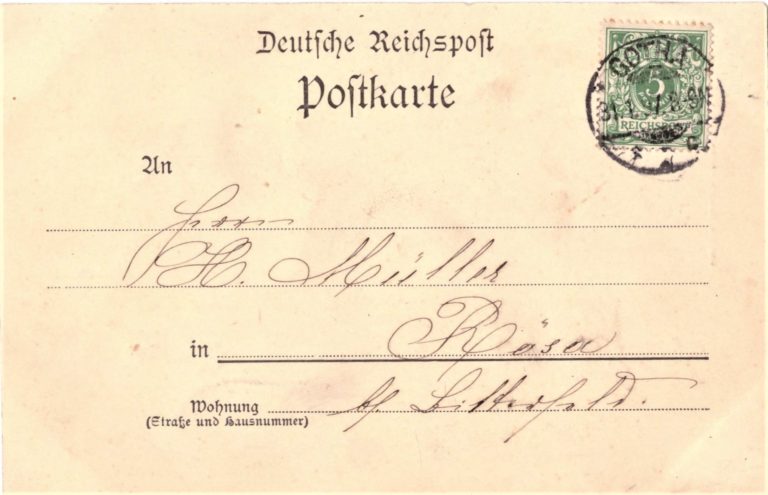 Deutsche Reichspost
Postkarte
GOTHA
5
REICHSPOST
An
Herrn
H. Müller
in Rösa
Wohnung b/ Bitterfeld.
(Straße und Hausnummer)